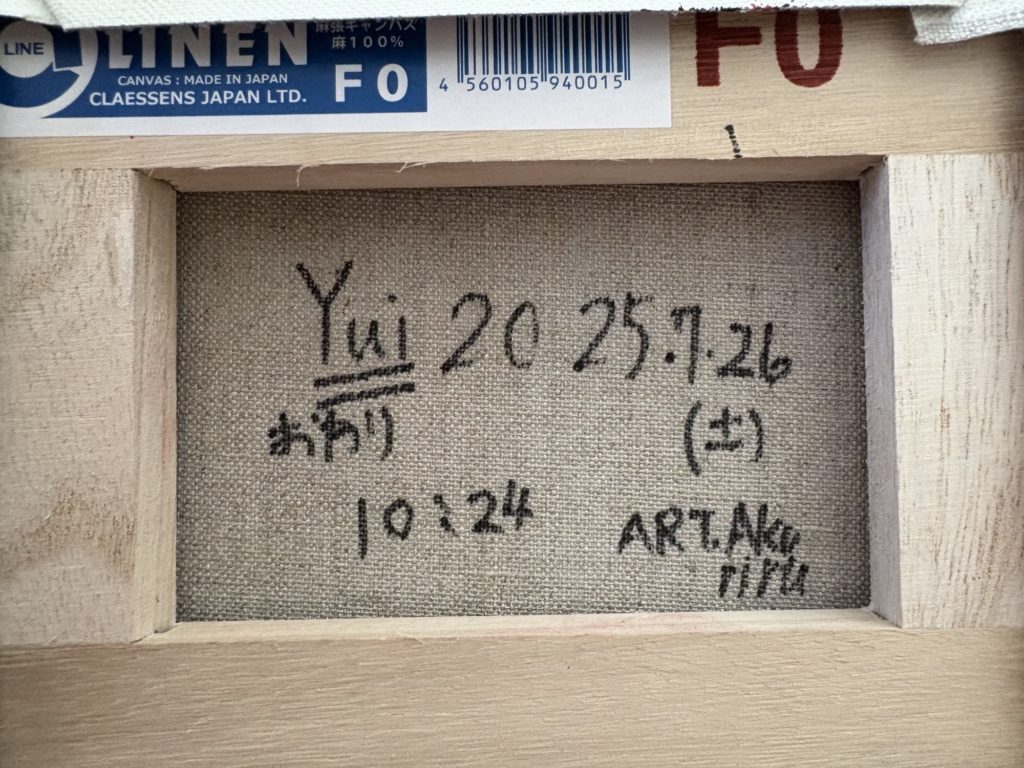 LINE
LINEN
麻張キャンバス
麻100%
CANVAS : MADE IN JAPAN
CLAESSENS JAPAN LTD.
F0
4 560105 940015
F0
Yui 2025.7.26
おわり
(土)
10:24
ART.Aku
riru